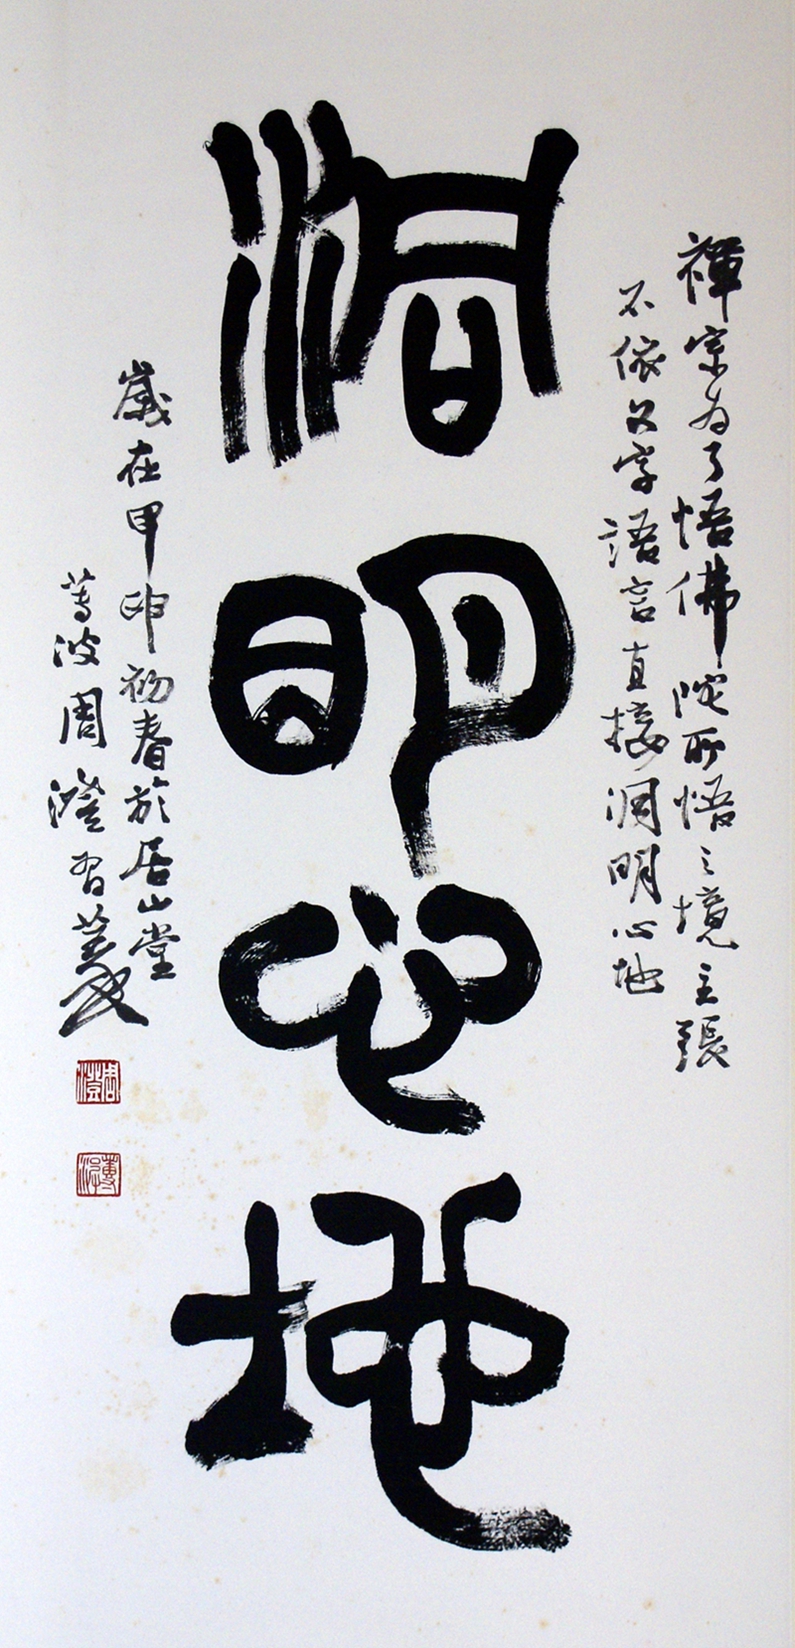 禪宗為了悟佛陀所悟之境主張
不依文字語言直接洞明心地
洞明心地
歲在甲申初春於居山堂
蓴波周澄習篆
周澄
蓴波